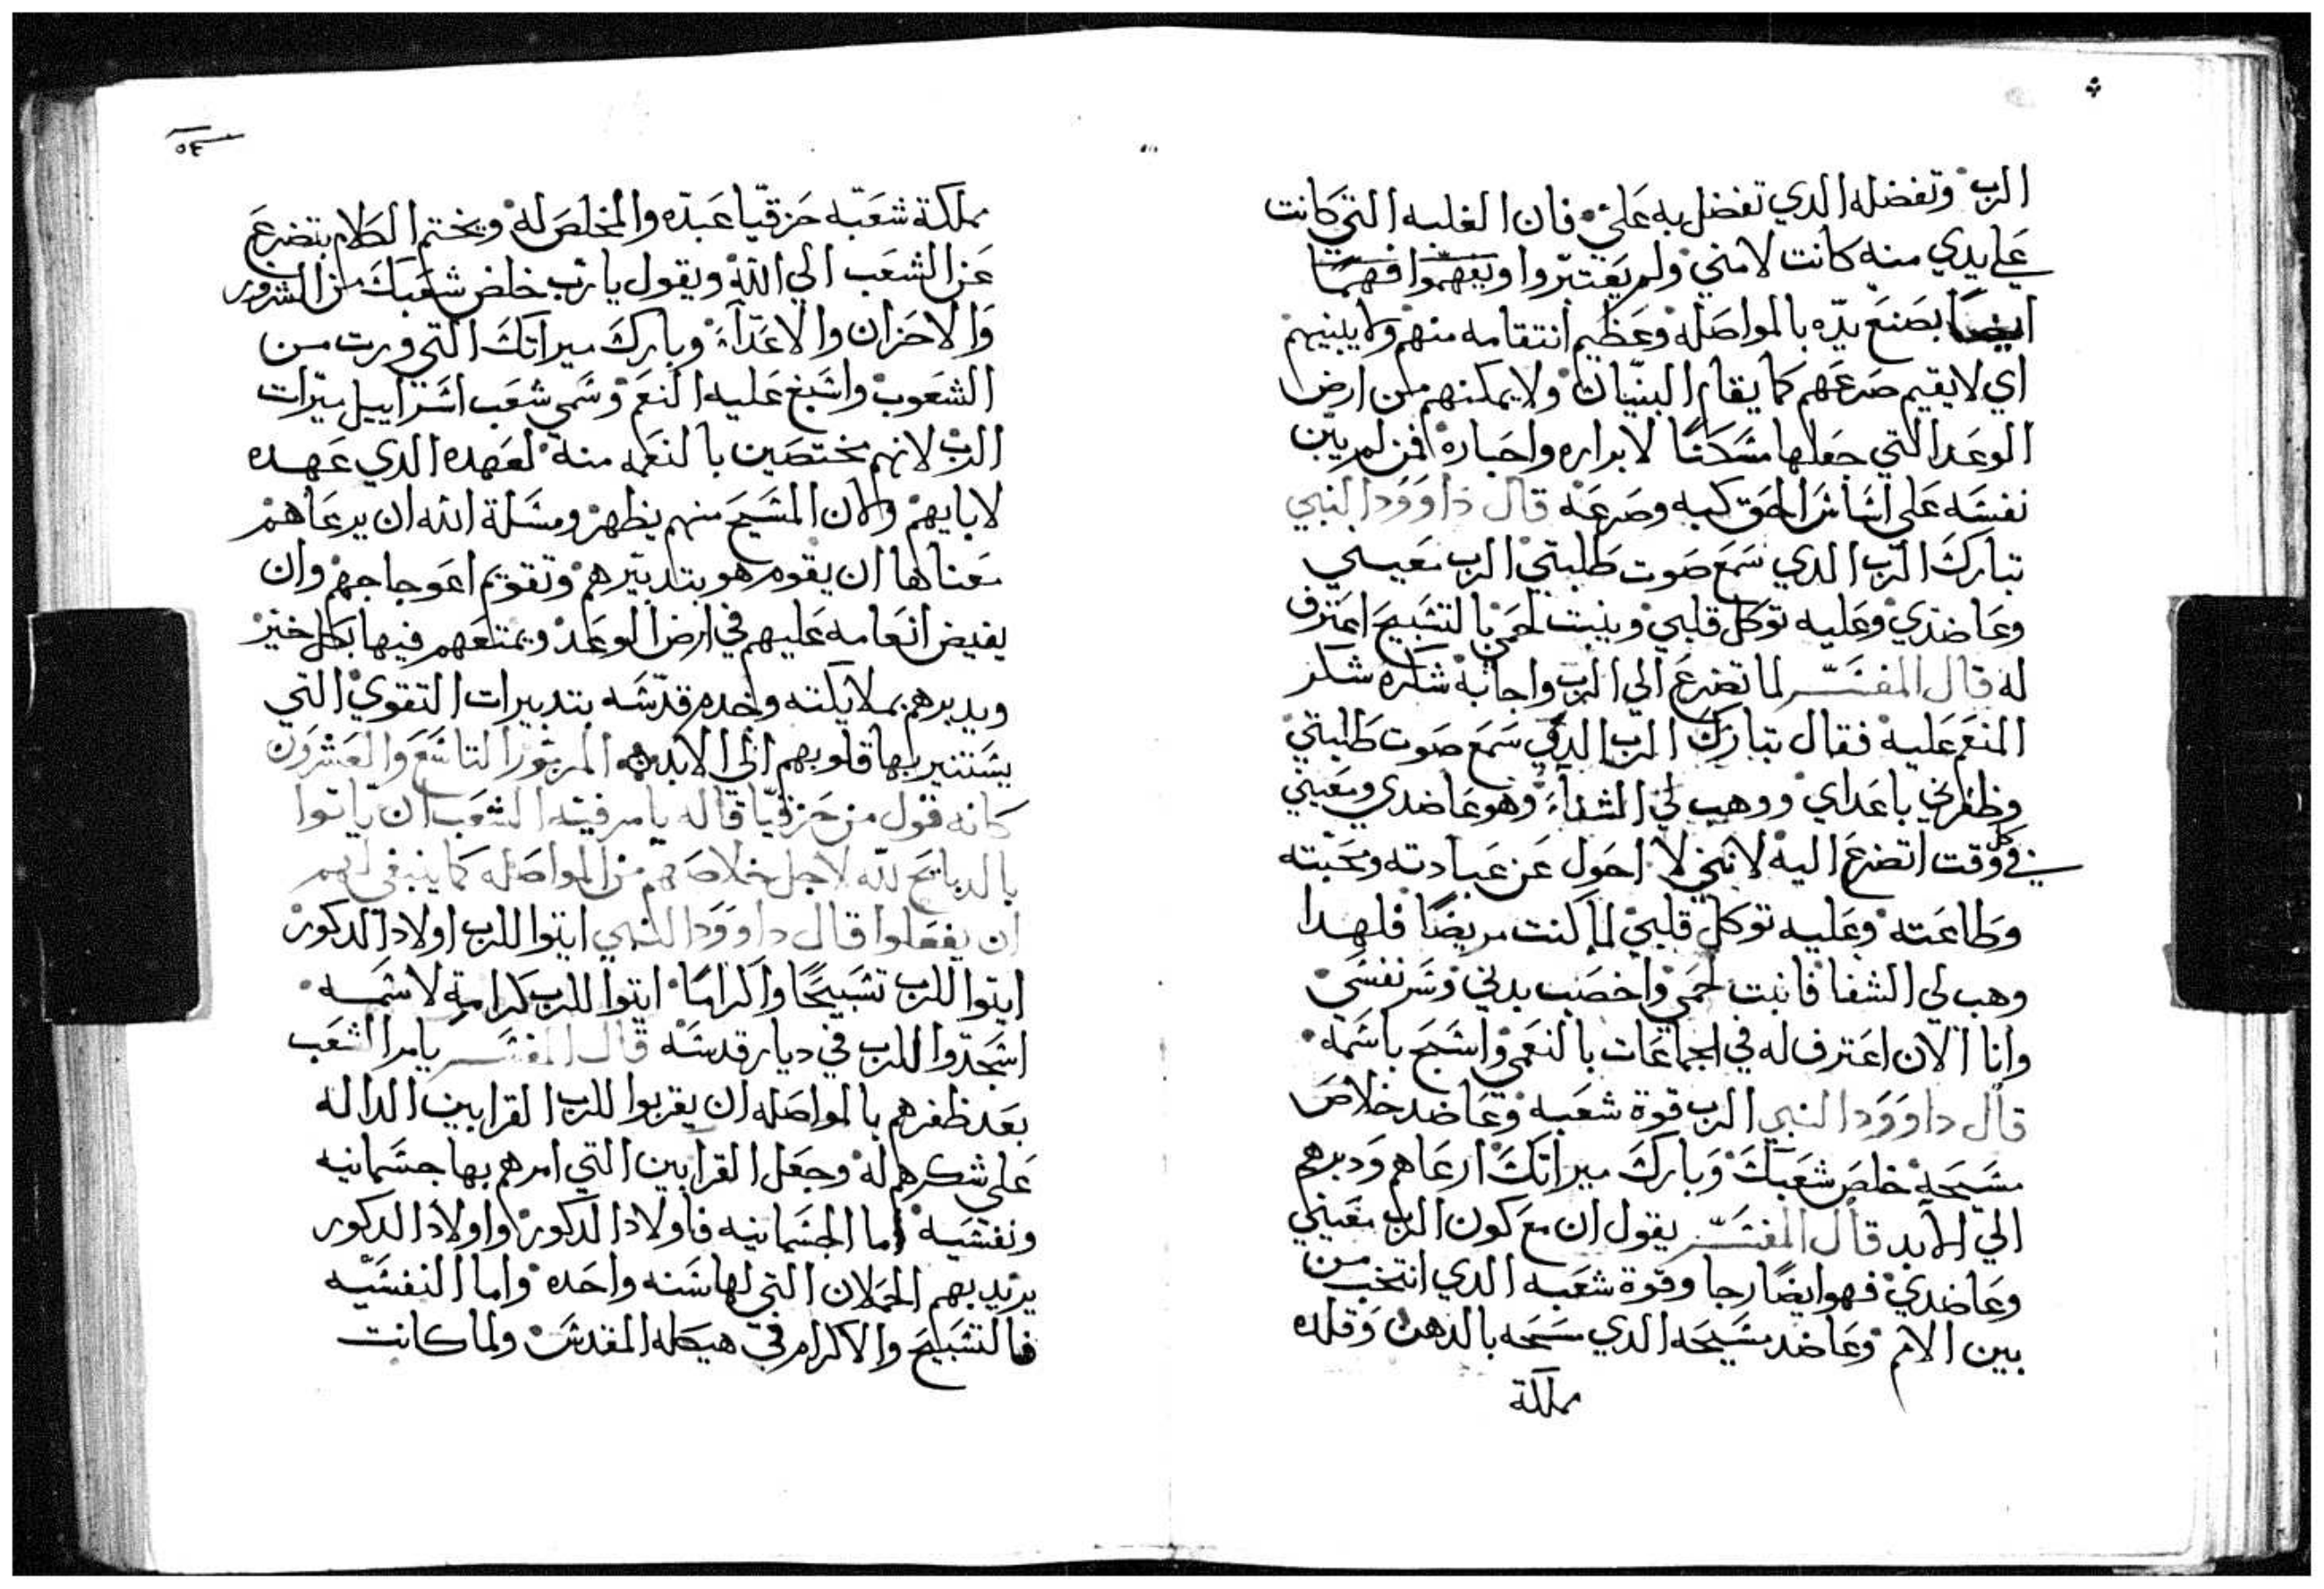 الرب وتفضله الدي تفضل به علي فان الغلبه التي كانت
علي يدي منه كانت لا مني ولم يعتبروا ويفهموا فهما
ايضا بصنع يده بالمواصله وعظيم انتقامه منهم ولا يبنيهم
اي لا يقيم صرعهم كما يقام البنيان ولا يمكنهم من ارض
الوعد التي جعلها مسكنا لابراره واحباره فمن لم يبن
نفسه على اساس الحق كبه وصرعه قال داوود النبي
تبارك الرب الدي سمع صوت طلبتي الرب معيني
وعاضدي وعليه توكل قلبي وينبت لحمي بالتسبيح اعترف
له قال المفسر لما تضرع الي الرب واجابه شكره شكر
المنعم عليه فقال تبارك الرب الدي سمع صوت طلبتي
وظفرني باعداي ووهب لي الشفاء وهو عاضدي ومعيني
في كل وقت اتضرع اليه لانني لا احول عن عبادته ومحبته
وطاعته وعليه توكل قلبي لما كنت مريضا فلهدا
وهب لي الشفا فانبت لحمي واخصب بدني وسر نفسي
وانا الان اعترف له في الجماعات بالنعم واسبح باسمه
قال داوود النبي الرب قوة شعبه وعاضد خلاص
مسيحه خلص شعبك وبارك ميراتك ارعاهم ودبرهم
الي الابد قال المفسر يقول ان مع كون الرب معيني
وعاضدي فهو ايضا رجا وقوة شعبه الدي انتخب من
بين الامم وعاضد مسيحه الدي مسحه بالدهن وقلده
مملكة
٥٤
مملكة شعبه حزقيا عبده والمخلص له ويختم الكلام بتضرع
عن الشعب الي الله ويقول يا رب خلص شعبك من الشرور
والاحزان والاعداء وبارك ميراتك التي ورت من
الشعوب واسبغ عليه النعم وسمي شعب اسراييل ميرات
الرب لانهم مختصين بالنعمه منه لعهده الدي عهده
لابايهم ولان المسيح منهم يظهر ومسلة الله ان يرعاهم
معناها ان يقوم هو بتدبيرهم وتقويم اعوجاجهم وان
يفيض انعامه عليهم في ارض الوعد ويمتعهم فيها بكل خير
ويدبرهم بملايكته وخدم قدسه بتدبيرات التقوي التي
يستنير بها قلوبهم الي الابد المزمور التاسع والعشرون
كانه قول من حزقيا قاله يامر فيه الشعب ان ياتوا
بالدبايح لله لاجل خلاصهم من المواصله كما ينبغي لهم
ان يفعلوا قال داوود النبي ايتوا للرب اولاد الدكور
ايتوا للرب تسبيحا واكراما ايتوا للرب كرامة لاسمه
اسجدوا للرب في ديار قدسه قال المفسر يامر الشعب
بعد ظفرهم بالمواصله ان يقربوا للرب القرابين الداله
علي شكرهم له وجعل القرابين التي امرهم بها جسمانيه
ونفسيه اما الجسمانيه فاولاد الدكور واولاد الدكور
يريد بهم الحملان التي لها سنه واحده واما النفسيه
فالتسبيح والاكرام في هيكله المقدس ولما كانت